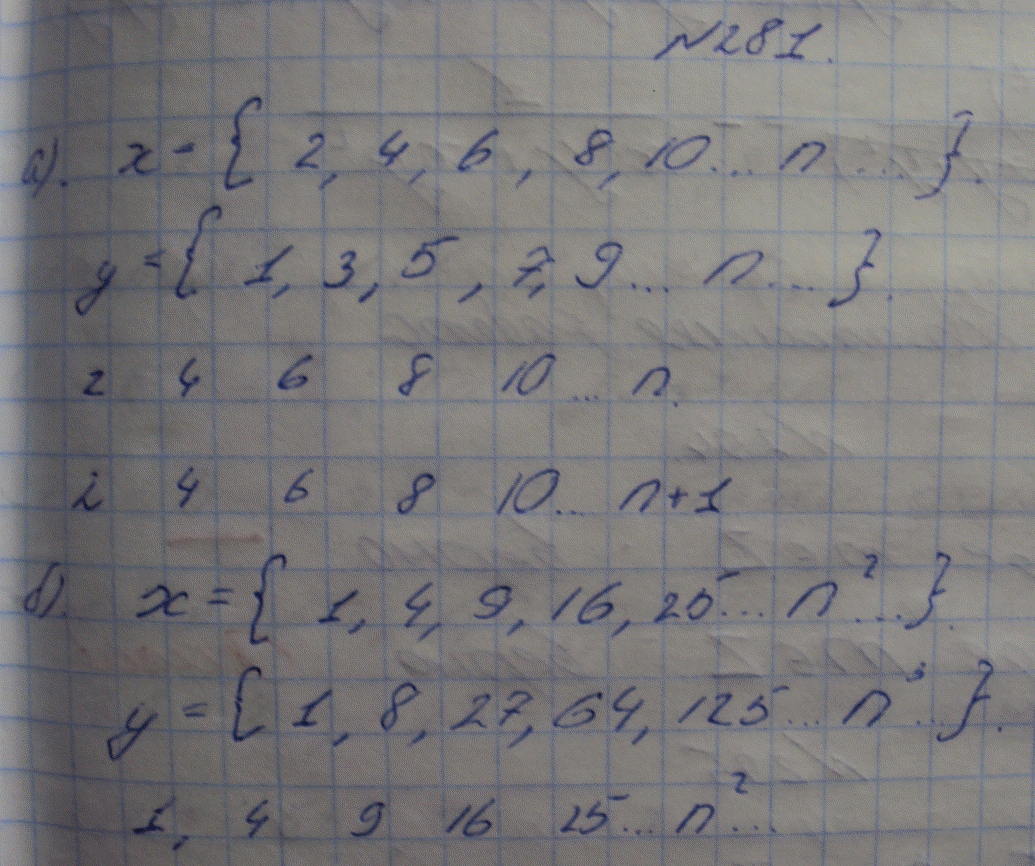 №281.
а). x = { 2, 4, 6, 8, 10... n ... }.
y = { 1, 3, 5, 7, 9... n ... }.
2 4 6 8 10 ... n.
2 4 6 8 10... n+1
б). x = { 1, 4, 9, 16, 25... n² ... }.
y = { 1, 8, 27, 64, 125... n³ ... }.
1, 4 9 16 25... n² ...